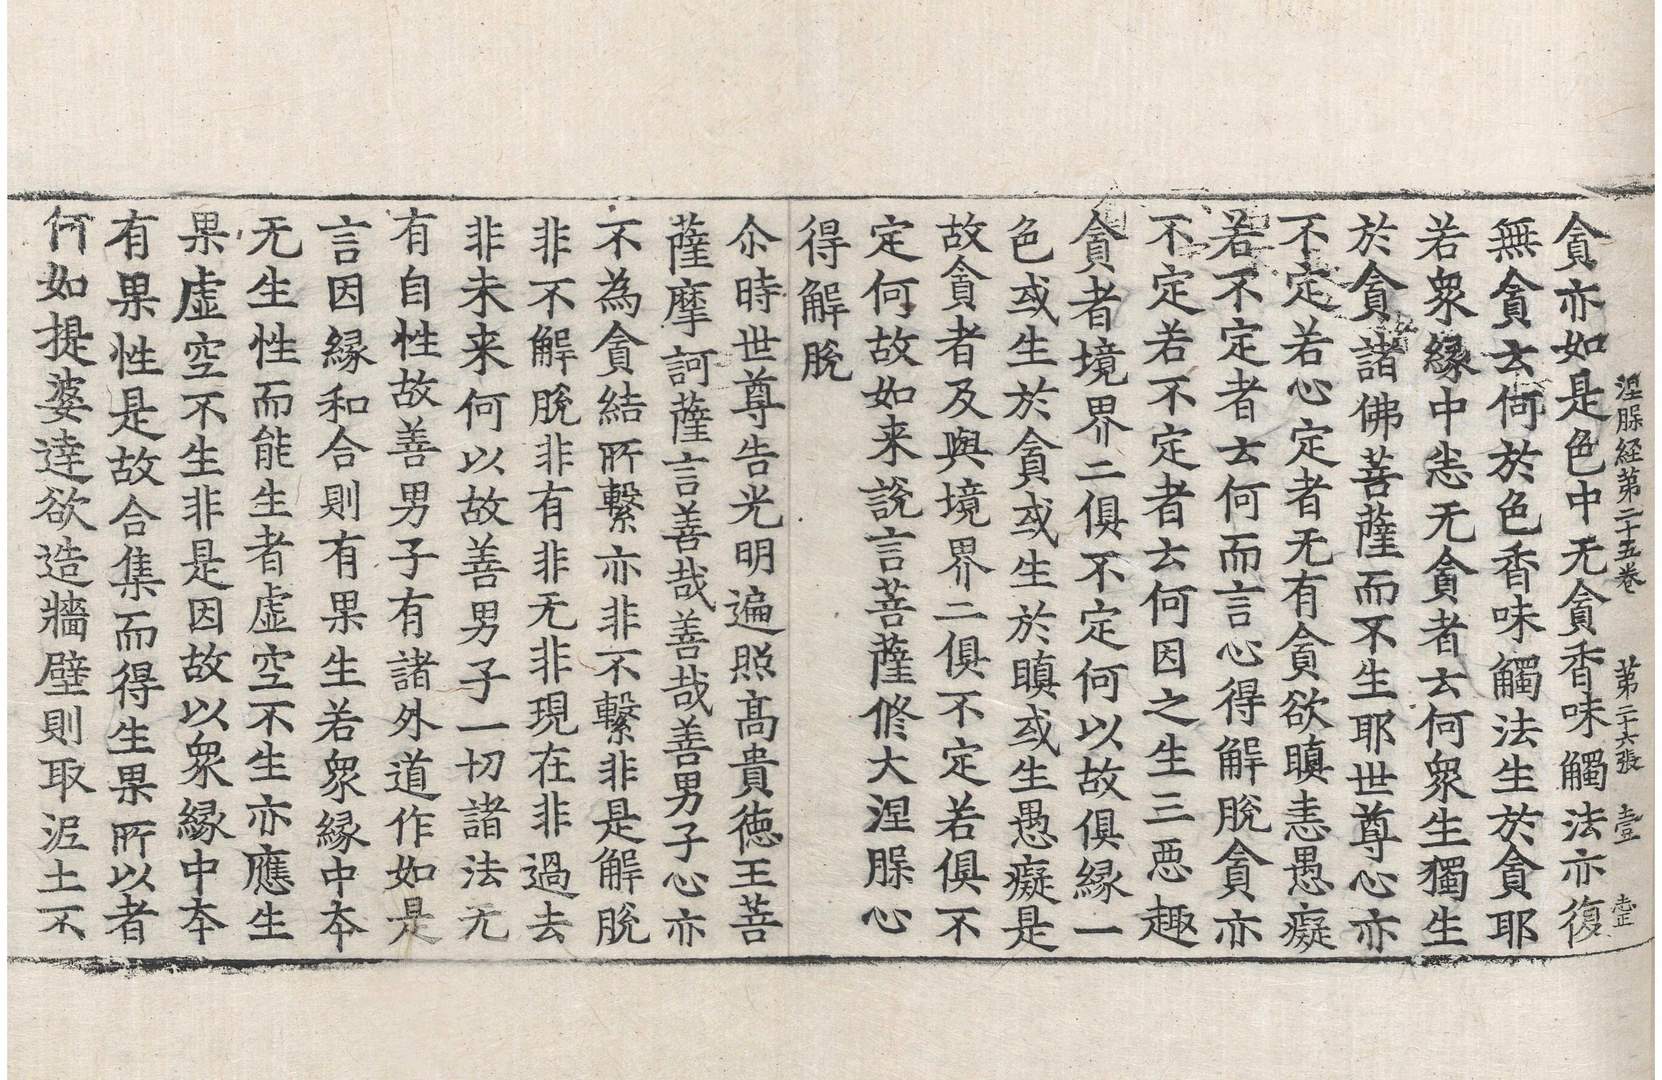 涅脲经第二十五卷 第二十六張 壹
貪亦如是色中无貪香味觸法亦復
無貪云何於色香味觸法生於貪耶
若衆縁中悉无貪者云何衆生獨生
於貪諸佛菩薩而不生耶世尊心亦
不定若心定者无有貪欲瞋恚愚癡
若不定者云何而言心得解脫貪亦
不定若不定者云何因之生三惡趣
貪者境界二俱不定何以故俱縁一
色或生於貪或生於瞋或生愚癡是
故貪者及與境界二俱不定若俱不
定何故如来說言菩薩俢大涅脲心
得解脫
尒時世尊告光明遍照髙貴徳王菩
薩摩訶薩言善哉善哉善男子心亦
不為貪結所繫亦非不繫非是解脫
非不解脫非有非无非現在非過去
非未来何以故善男子一切諸法无
有自性故善男子有諸外道作如是
言因縁和合則有果生若衆縁中夲
无生性而能生者虚空不生亦應生
果虚空不生非是因故以衆縁中夲
有果性是故合集而得生果所以者
何如提婆達欲造牆壁則取泥土不